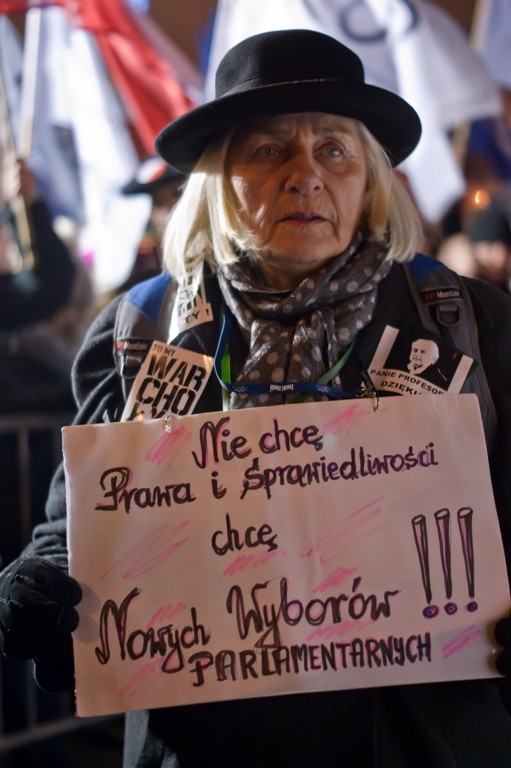 TO MY
WAR
CHO
PANIE PROFESOR
DZIĘKU
Nie chcę
Prawa i Sprawiedliwości
chcę
Nowych Wyborów !!!
PARLAMENTARNYCH